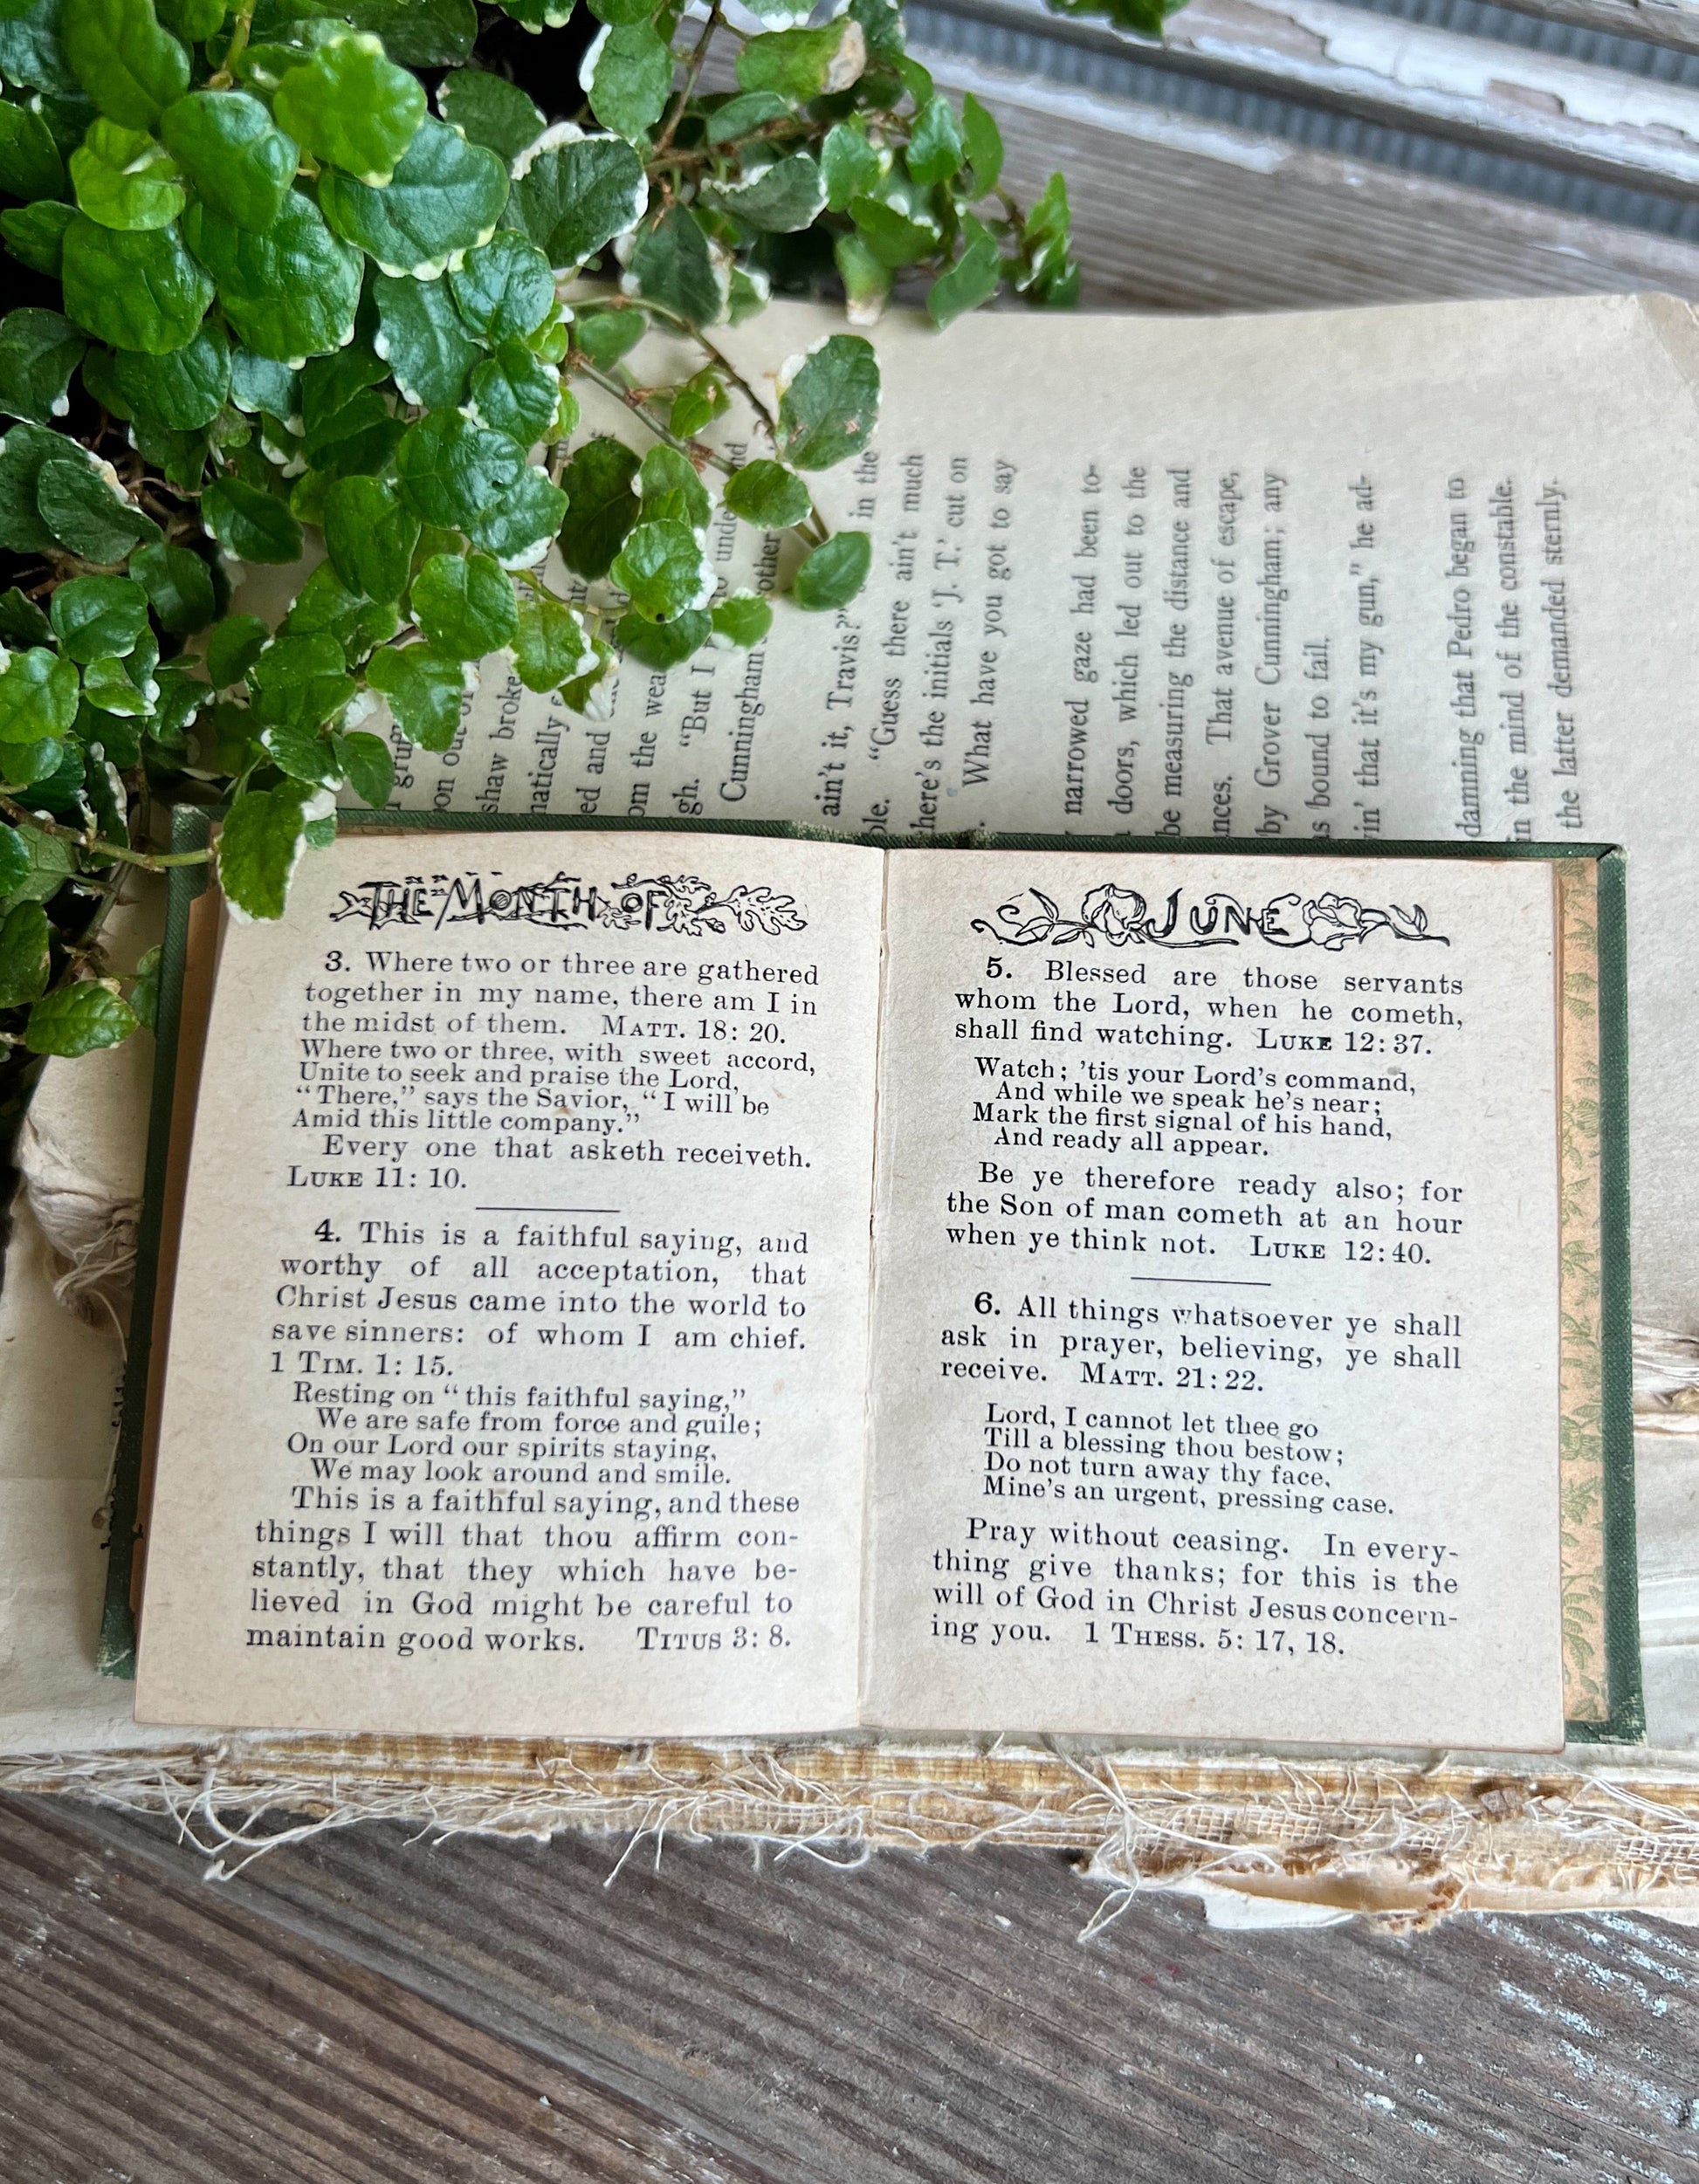 THE MONTH OF
3. Where two or three are gathered
together in my name, there am I in
the midst of them. MATT. 18: 20.
Where two or three, with sweet accord,
Unite to seek and praise the Lord,
“There,” says the Savior, “I will be
Amid this little company.”
Every one that asketh receiveth.
LUKE 11: 10.
4. This is a faithful saying, and
worthy of all acceptation, that
Christ Jesus came into the world to
save sinners: of whom I am chief.
1 TIM. 1: 15.
Resting on “this faithful saying,”
We are safe from force and guile;
On our Lord our spirits staying,
We may look around and smile.
This is a faithful saying, and these
things I will that thou affirm con-
stantly, that they which have be-
lieved in God might be careful to
maintain good works. TITUS 3: 8.
JUNE
5. Blessed are those servants
whom the Lord, when he cometh,
shall find watching. LUKE 12: 37.
Watch; ’tis your Lord’s command,
And while we speak he’s near;
Mark the first signal of his hand,
And ready all appear.
Be ye therefore ready also; for
the Son of man cometh at an hour
when ye think not. LUKE 12: 40.
6. All things whatsoever ye shall
ask in prayer, believing, ye shall
receive. MATT. 21: 22.
Lord, I cannot let thee go
Till a blessing thou bestow;
Do not turn away thy face,
Mine’s an urgent, pressing case.
Pray without ceasing. In every-
thing give thanks; for this is the
will of God in Christ Jesus concern-
ing you. 1 THESS. 5: 17, 18.
shaw broke
ed and
the wea
“But I
Cunningham
ain’t it, Travis?” in the
“Guess there ain’t much
there’s the initials ‘J. T.’ cut on
What have you got to say
narrowed gaze had been to-
doors, which led out to the
be measuring the distance and
That avenue of escape,
by Grover Cunningham; any
bound to fail.
that it’s my gun,” he ad-
damning that Pedro began to
in the mind of the constable.
the latter demanded sternly.